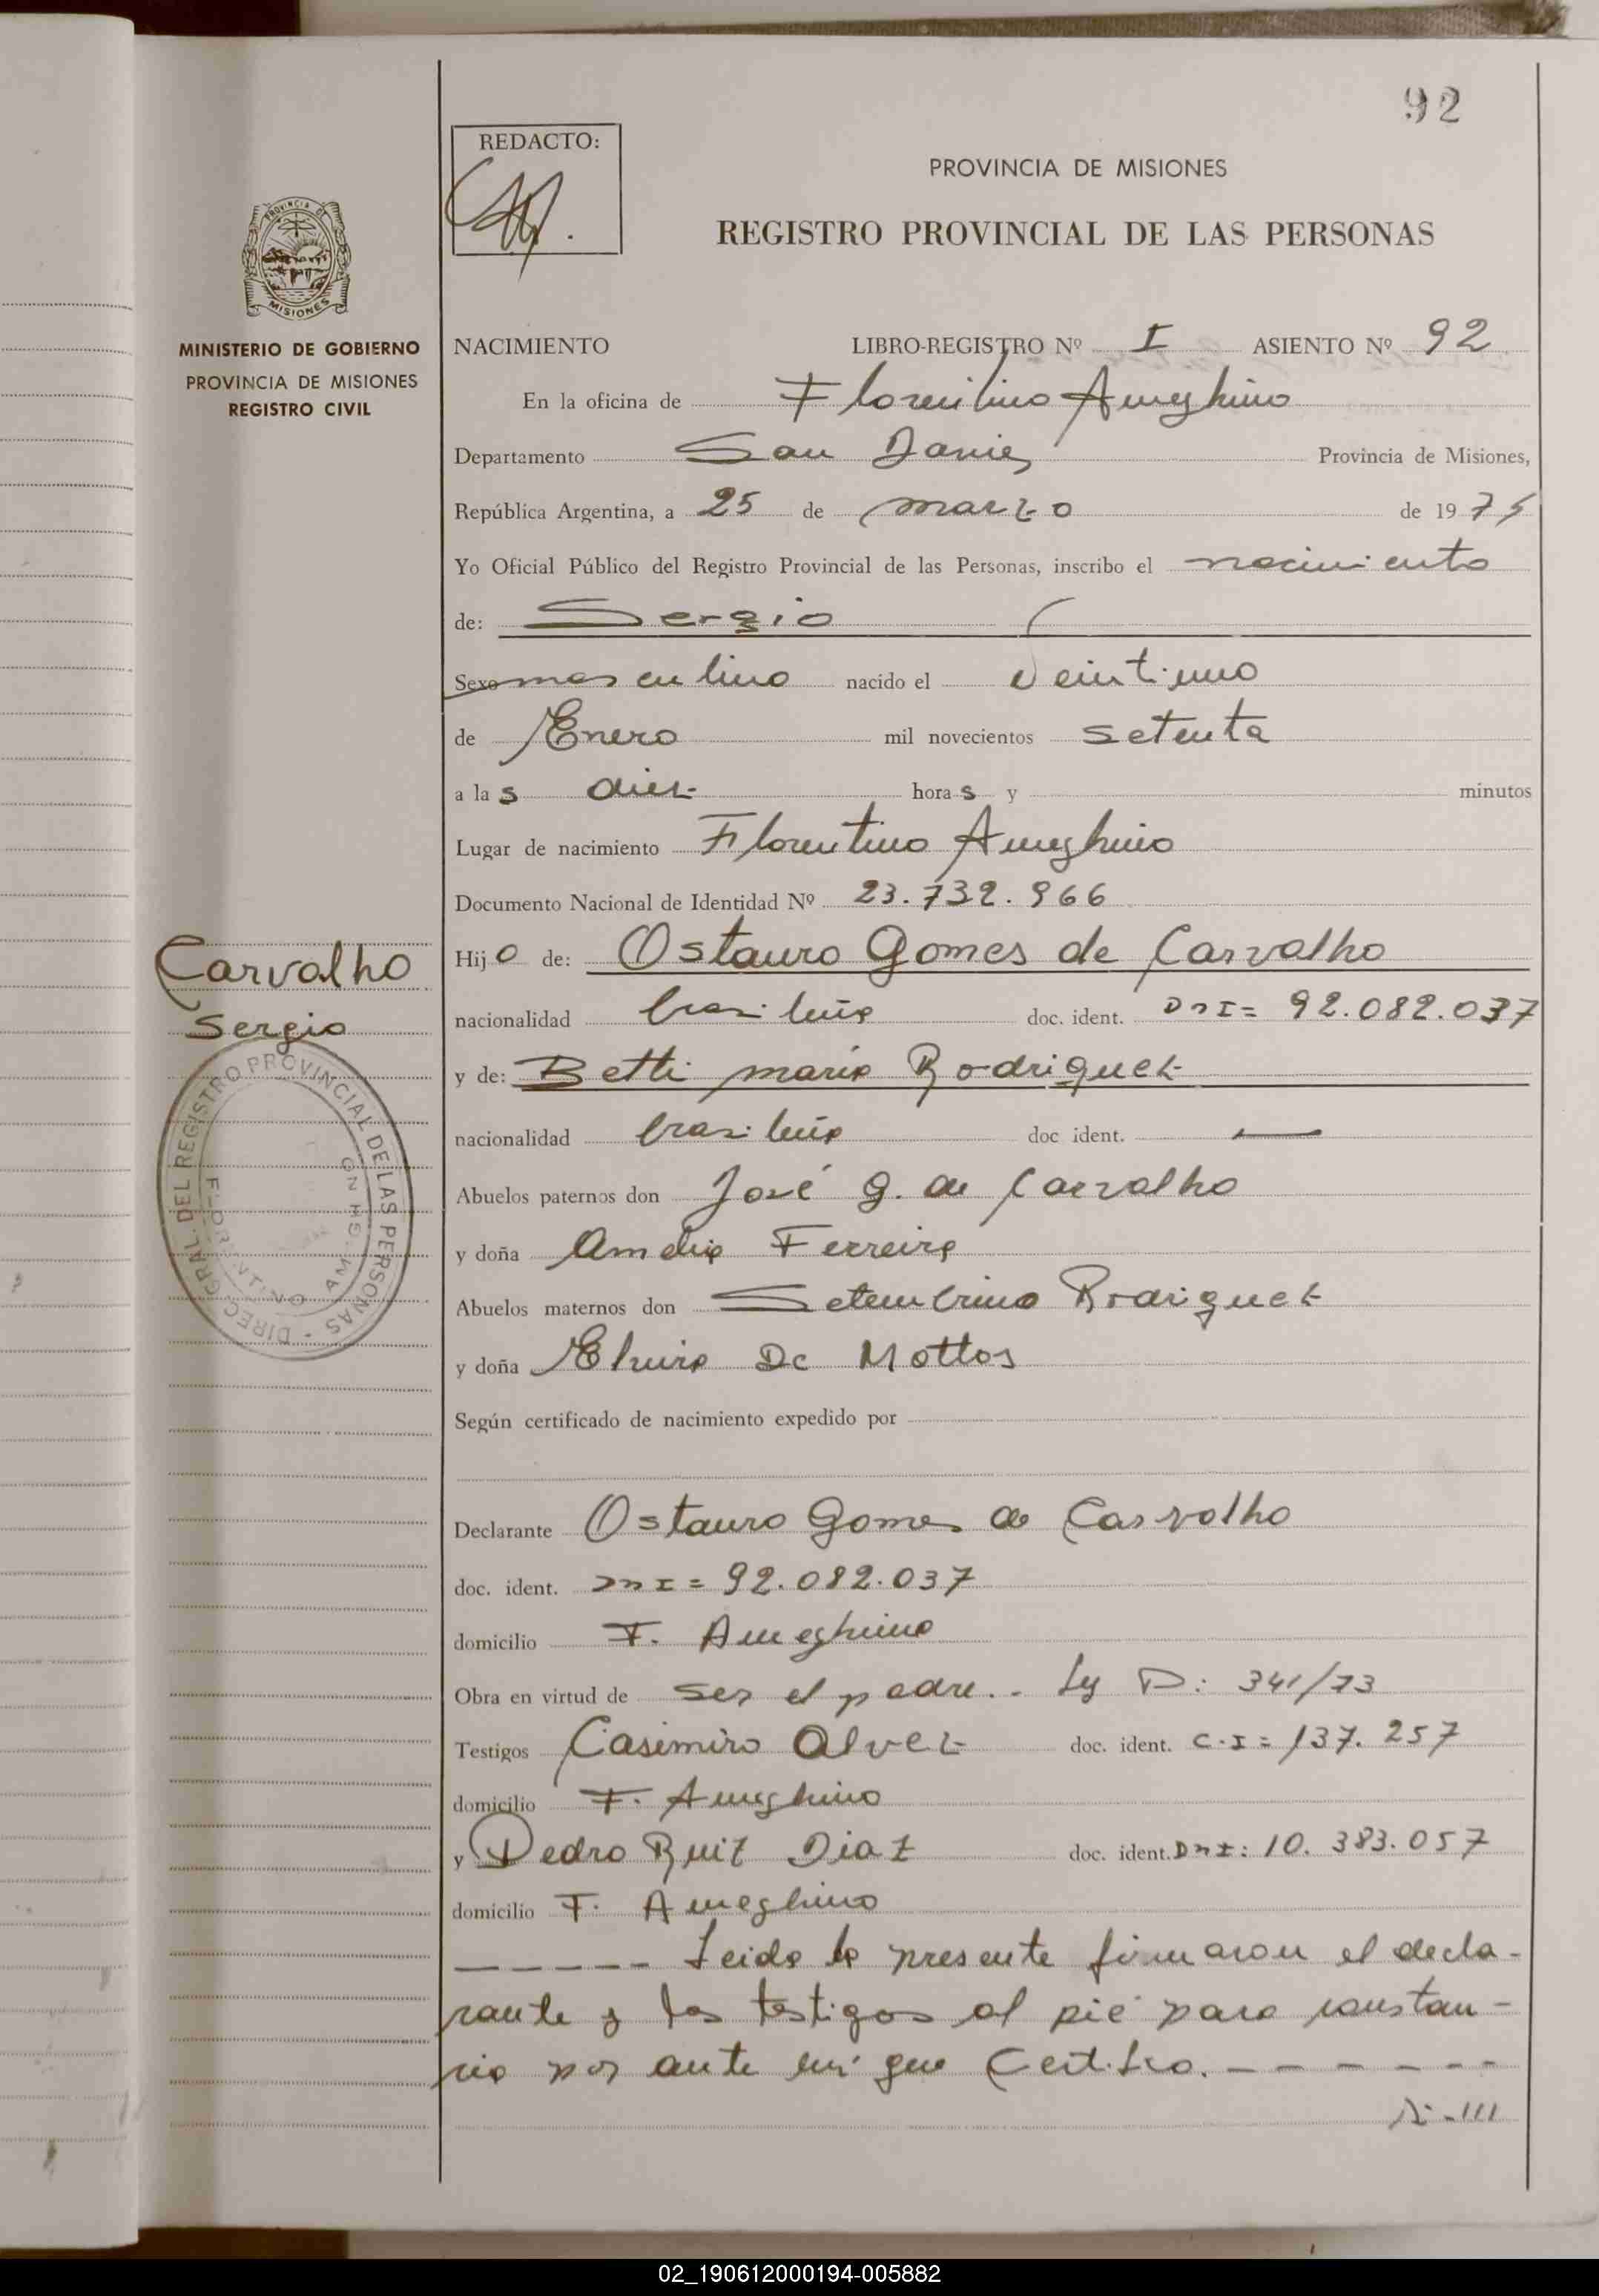 92
REDACTO:
PROVINCIA DE MISIONES
REGISTRO PROVINCIAL DE LAS PERSONAS
PROVINCIA DE
MISIONES
MINISTERIO DE GOBIERNO
PROVINCIA DE MISIONES
REGISTRO CIVIL
NACIMIENTO LIBRO-REGISTRO Nº I ASIENTO Nº 92
En la oficina de Florentino Ameghino
Departamento San Javier Provincia de Misiones,
República Argentina, a 25 de marzo de 1975
Yo Oficial Público del Registro Provincial de las Personas, inscribo el nacimiento
de: Sergio
Sexo masculino nacido el veintiuno
de Enero mil novecientos setenta
a las diez horas y minutos
Lugar de nacimiento Florentino Ameghino
Documento Nacional de Identidad Nº 23.732.966
Carvalho
Sergio
DIREC. GRAL. DEL REGISTRO PROVINCIAL DE LAS PERSONAS
FLORENTINO AMEGHINO
Hijo de: Ostauro Gomes de Carvalho
nacionalidad brasileña doc. ident. DNI= 92.082.037
y de: Betti maría Rodriguez
nacionalidad brasileña doc ident. —
Abuelos paternos don José G. de Carvalho
y doña Amelia Ferreira
Abuelos maternos don Setembrino Rodriguez
y doña Elvira De Mottos
Según certificado de nacimiento expedido por
Declarante Ostauro Gomes de Carvalho
doc. ident. DNI= 92.082.037
domicilio F. Ameghino
Obra en virtud de ser el padre.- Ley D: 341/73
Testigos Casimiro Alvez doc. ident. C.I= 137.257
domicilio F. Ameghino
y Pedro Ruiz Diaz doc. ident. DNI: 10.383.057
domicilio F. Ameghino
----- Leida la presente firmaron el decla-
rante y los testigos al pié para constan-
cia por ante mi que Certifico. - - - - - -
02_190612000194-005882